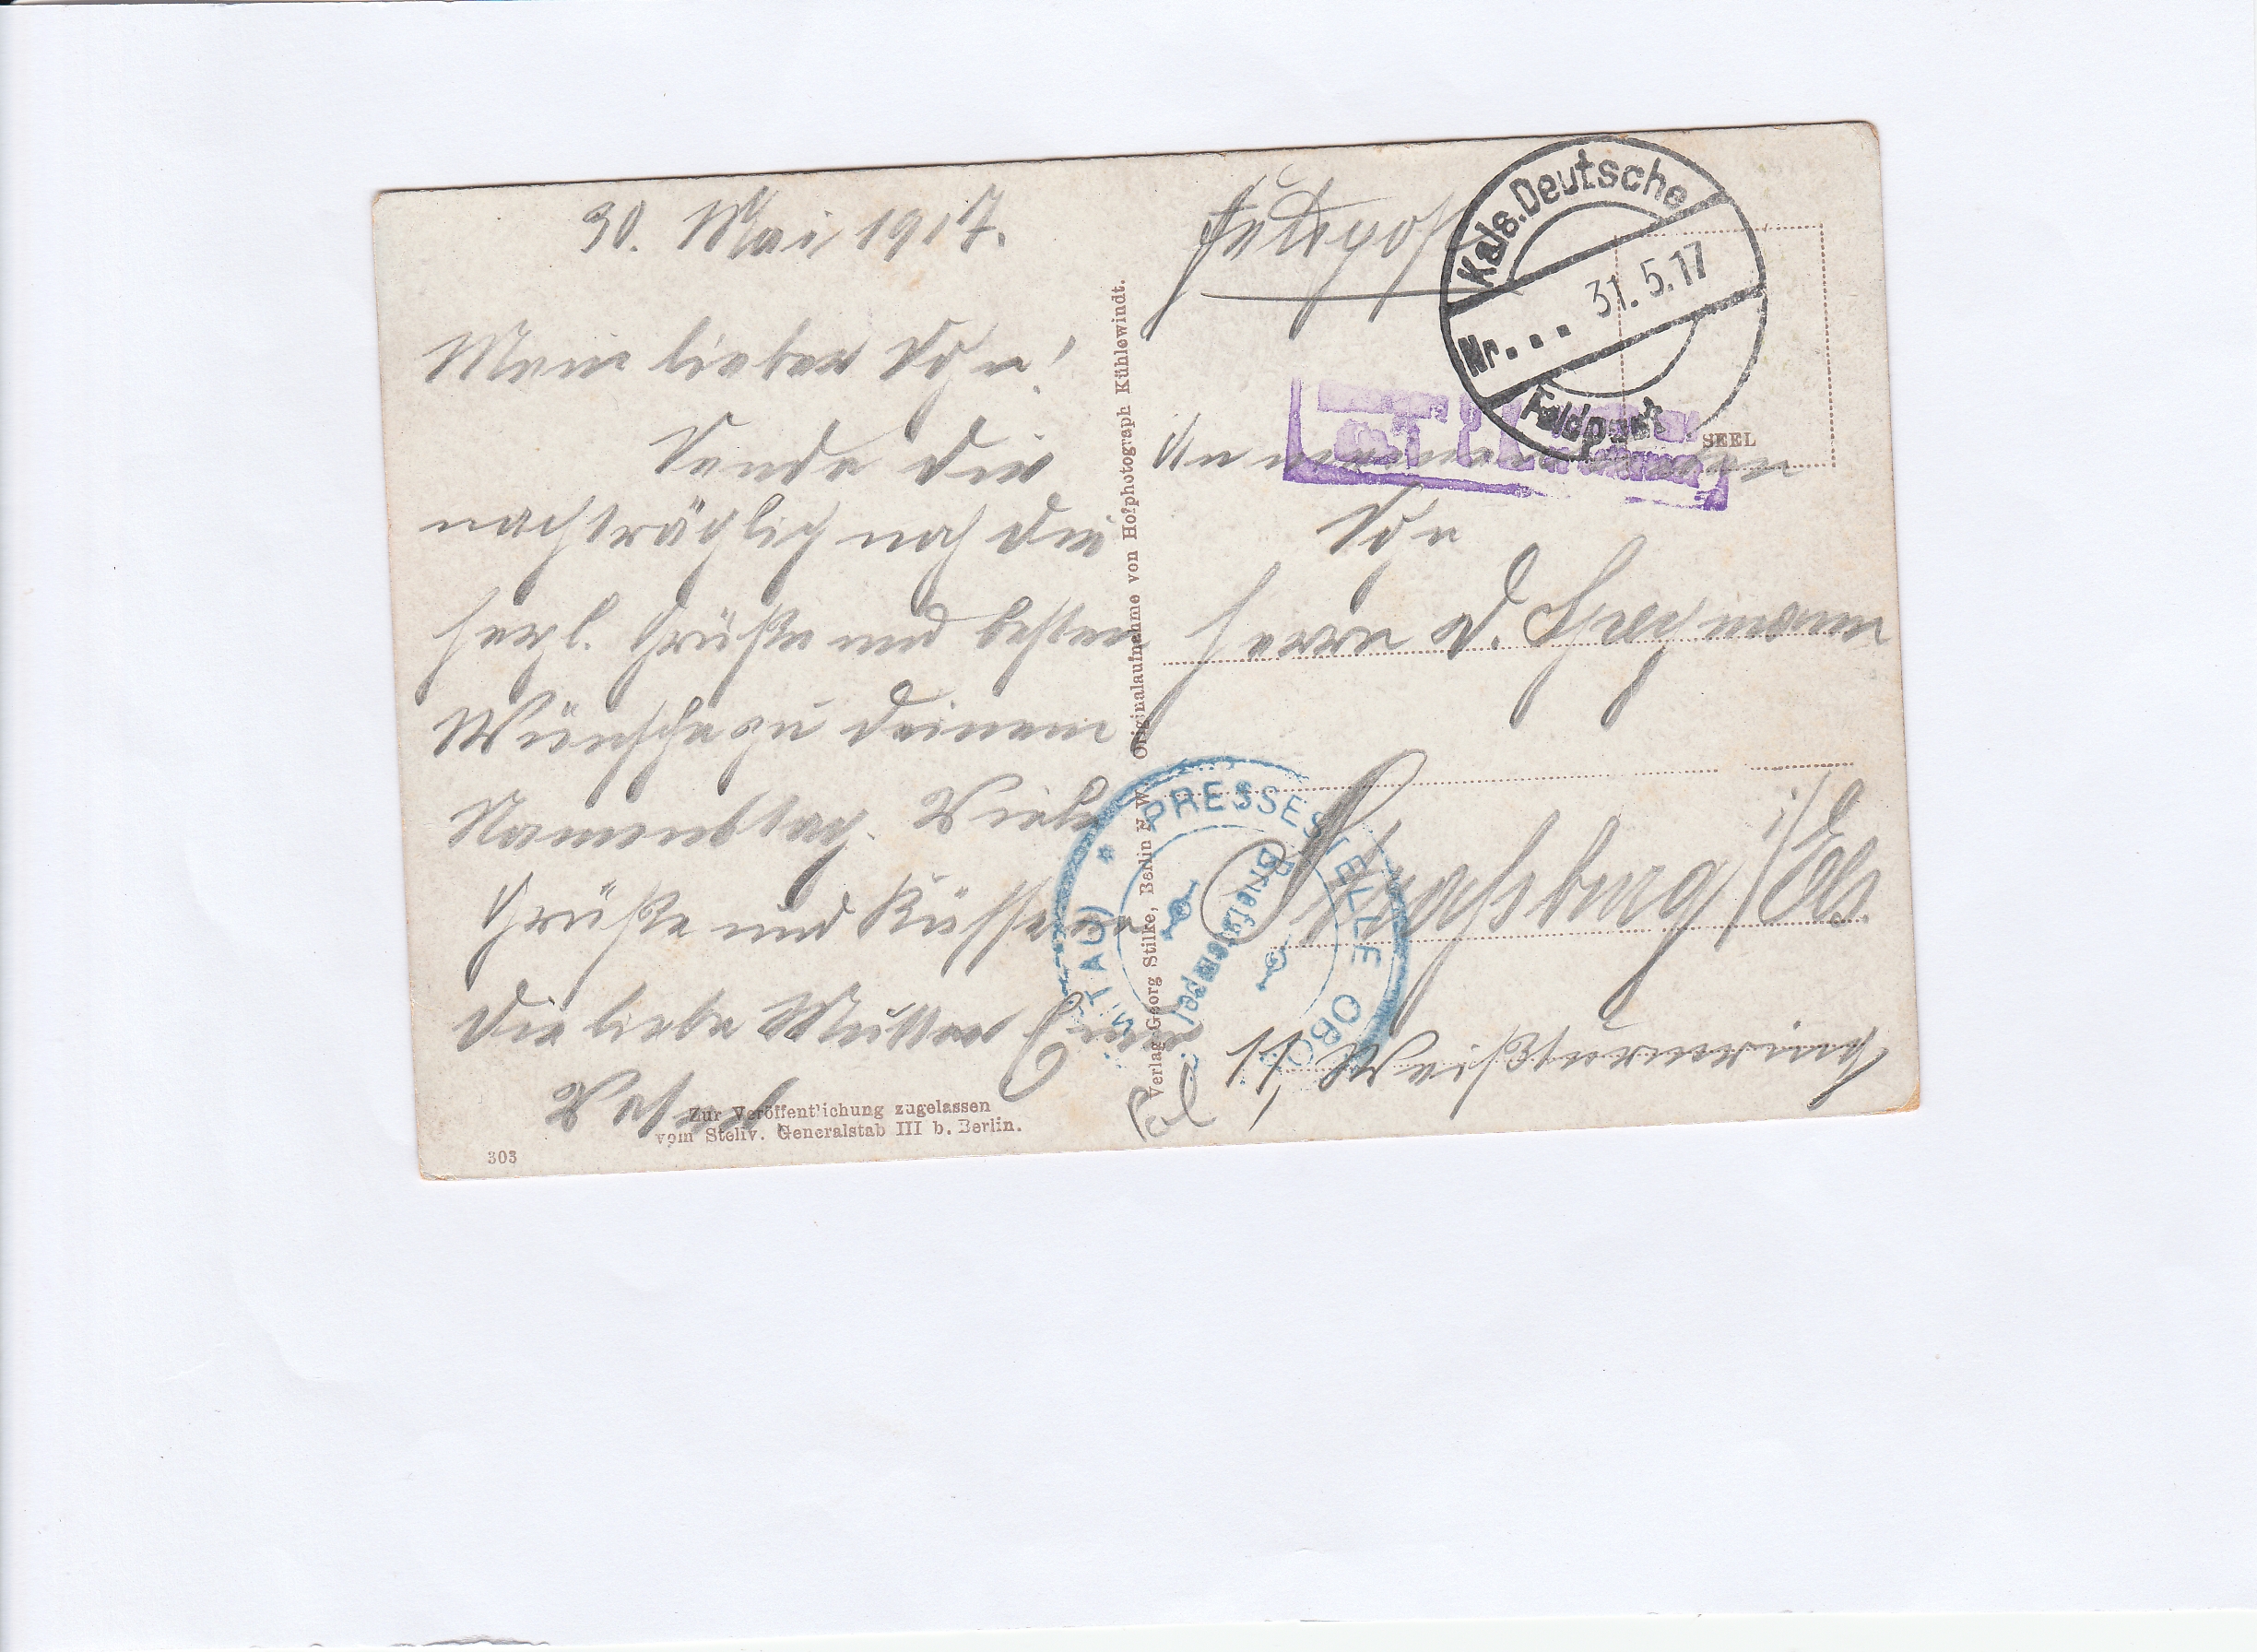 30. Mai 1917.
Mein lieber Sohn!
Sende Dir
nachträglich noch die
herzl. Grüße und besten
Wünsche zu Deinem
Namenstag. Viele
Grüße und Küsse
Die liebe Mutter
Vater
Zur Veröffentlichung zugelassen
vom Stellv. Generalstab III b. Berlin.
303
Verlag Georg Stilke, Berlin N. W. Originalaufnahme von Hofphotograph Kühlewindt.
Feldpost
Kais. Deutsche
Nr... 31.5.17
Feldpost
SEEL
An meinen lieben
Sohn
Herrn
Strassburg i/Els.
11, Weißturmring
PRESSESTELLE OBOST
Briefstempel